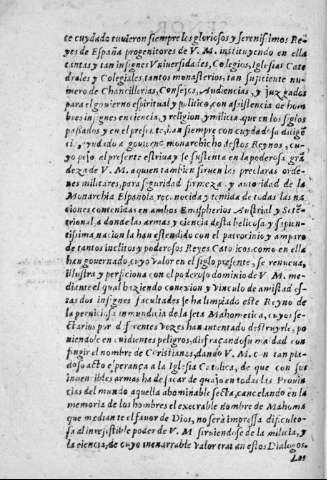 te cuydado tuuieron siempre les gloriosos y serenissimos Re-
yes de España progenitores de V. M. instituyendo en ella
tantas y tan insignes Vniuersidades, Colegios, Iglesias Cate
drales y Colegiales, tantos monasterios, tan suficiente nu-
mero de Chancillerias, Consejos, Audiencias, y juzgados
para el gouierno espiritual y politico, con assistencia de hom
bres insignes en ciencia, y religion, y milicia que en los siglos
passados y en el presente, ian siempre con cuydadosa dilige
al gouierno monarchicho destos Reynos, cu
yo peso al presente estriua y se sustenta en la poderosa grã
deza de V. M. a quien tambien siruen les preclaras orde-
nes militares, para seguridad firmeza y autoridad de la
Monarchia Española reconocida y temida de todas las na
ciones contenidas en ambos Emispherios Austrial y Sete-
trional, a donde las armas y ciencia desta belicosa y
tissima nacion la han estendido con el patrocinio y amparo
de tantos inclitos y poderosos Reyes Catolicos como en ella
han gouernado, cuyo valor en el siglo presente, se renueua,
illustra y perficiona con el poderoso dominio de V. M. me-
diante el qual haziendo conexion y vinculo de amistad es-
sas dos insignes facultades se ha limpiado este Reyno de
la perniciosa inmundicia de la seta Mahometica, cuyos se-
ctarios por diferentes vezes han intentado destruyrle, po
niendole en euidentes peligros, disfraçando su maldad con
fingir el nombre de Christianos, dando V. M. con tan pia-
doso acto esperança a la Iglesia Catolica, de que con sus
inuencibles armas ha de sacar de quajo en todas las Prouin
cias del mundo aquella abominable secta, cancelando en la
memoria de los hombres el execrable nombre de Mahoma
que mediante el fauor de Dios, no será impressa dificulto-
sa al irresistible poder de V. M. siruiendose de la milicia, y
la ciencia, de cuyo inenarrable valor tratan estos Dialogos.
Los